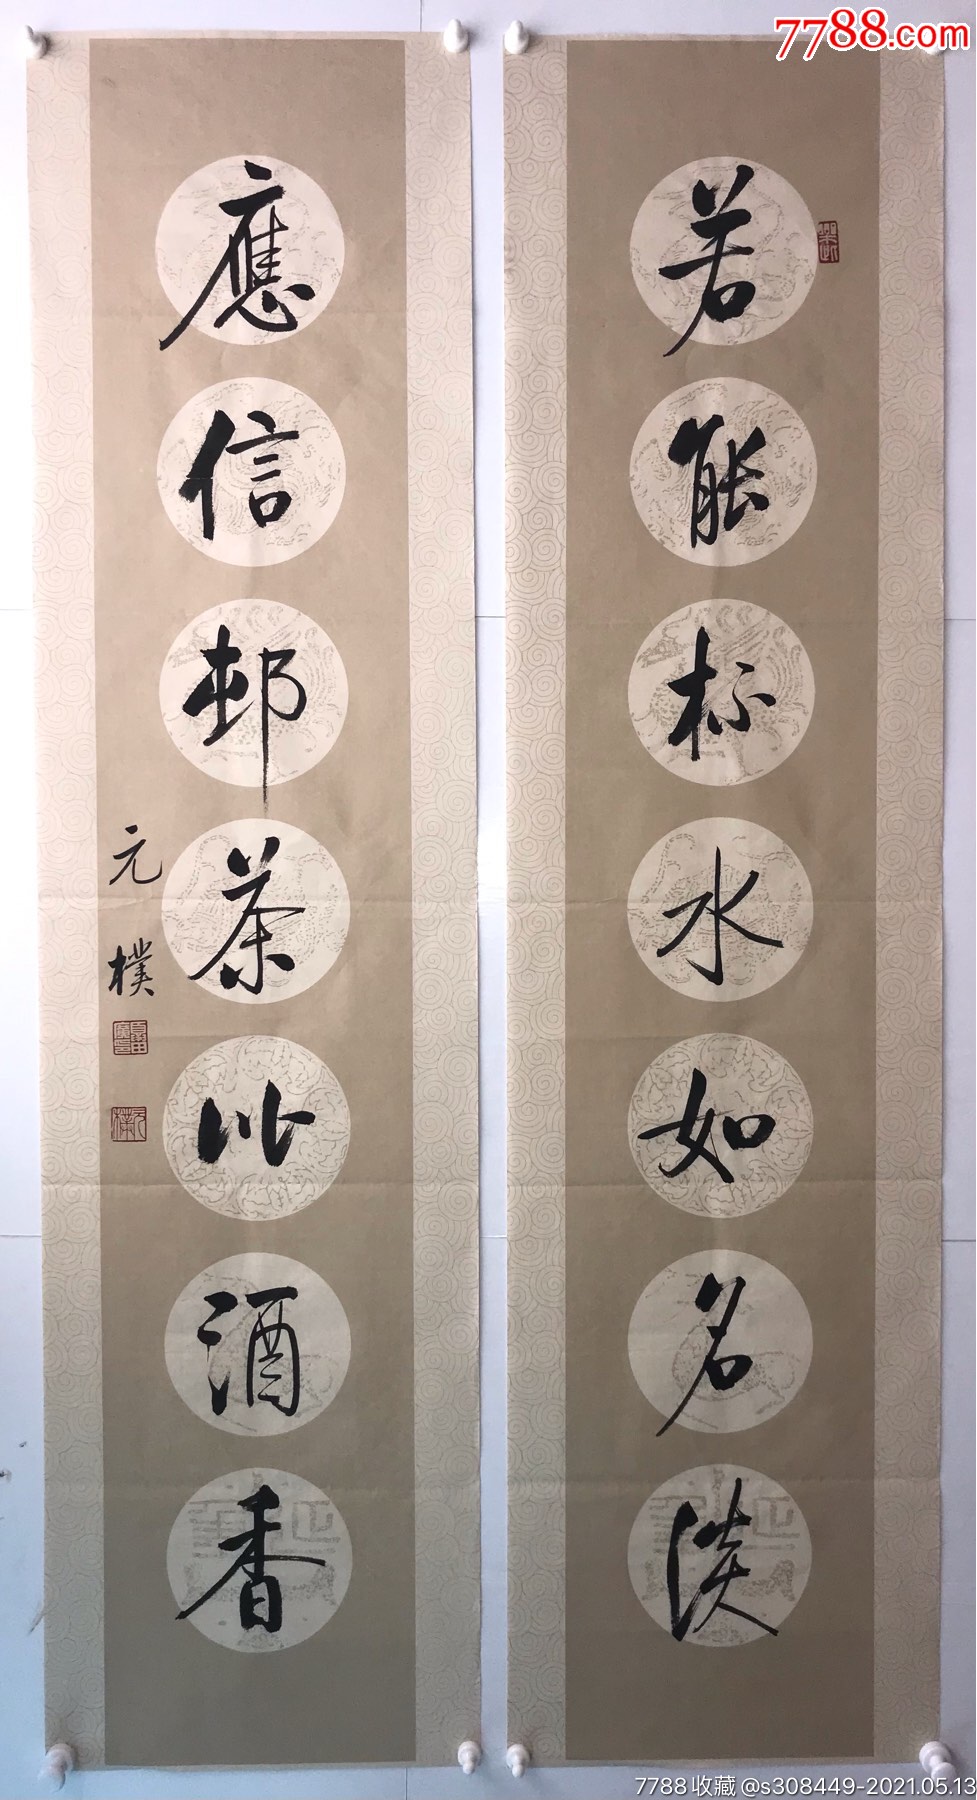 7788.com
若能杯水如名淡
應信邨茶比酒香
元樸
元樸
7788收藏@s308449-2021.05.13